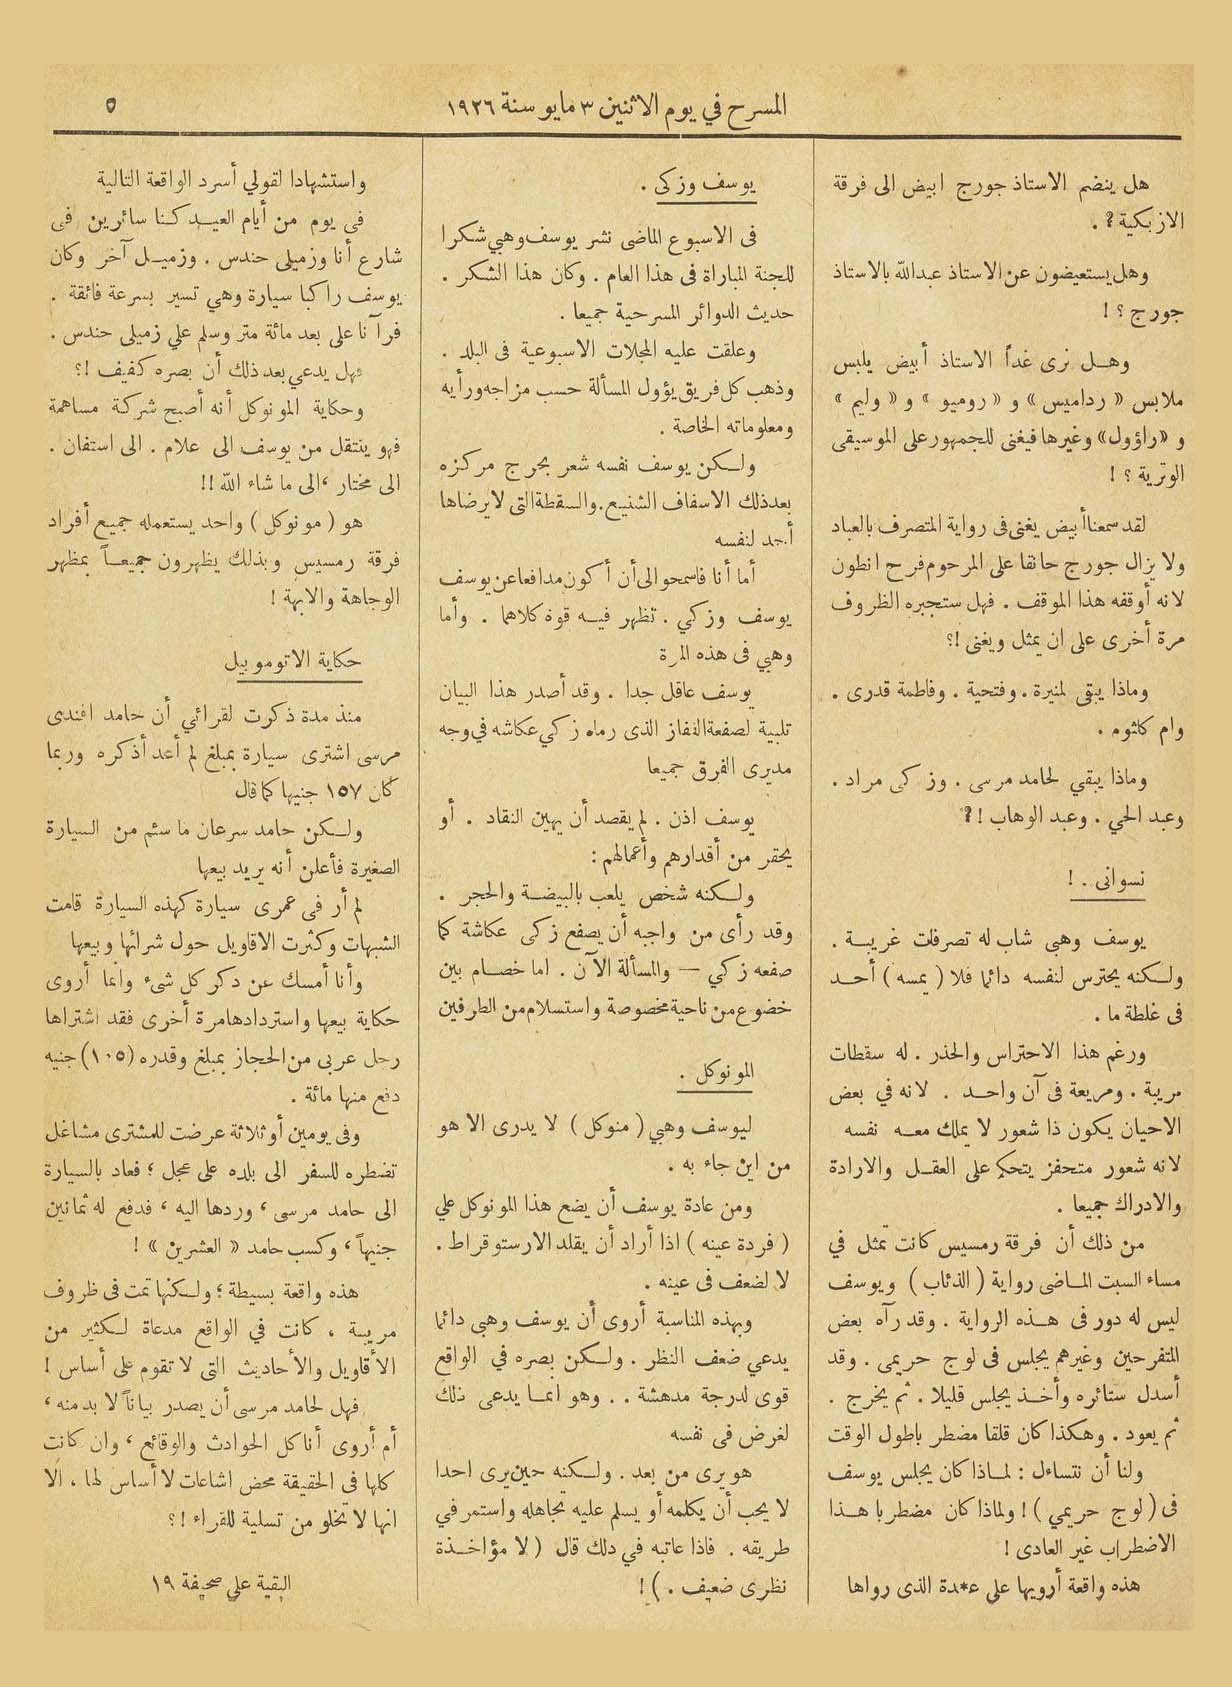 المسرح في يوم الاثنين ٣ مايو سنة ١٩٢٦
٥
هل ينضم الاستاذ جورج ابيض الى فرقة
الازبكية؟ .
وهل يستعيضون عن الاستاذ عبدالله بالاستاذ
جورج ؟ !
وهل نرى غداً الاستاذ أبيض يلبس
ملابس « رداميس » و « روميو » و « وليم »
و «راؤول» وغيرها فيغنى للجمهور على الموسيقى
الوترية ؟ !
لقد سمعنا أبيض يغنى فى رواية المتصرف بالعباد
ولا يزال جورج حانقا على المرحوم فرح انطون
لانه أوقفه هذا الموقف . فهل ستجبره الظروف
مرة أخرى على ان يمثل ويغنى !؟
وماذا يبقى لمنيرة . وفتحية . وفاطمة قدرى .
وام كلثوم .
وماذا يبقي لحامد مرسى . وزكى مراد .
وعبد الحي . وعبد الوهاب !؟
نسوانى . !
يوسف وهبى شاب له تصرفات غريبة .
ولكنه يحترس لنفسه دائما فلا ( يمسه ) أحد
فى غلطة ما .
ورغم هذا الاحتراس والحذر . له سقطات
مريبة . ومريعة فى آن واحد . لانه في بعض
الاحيان يكون ذا شعور لا يملك معه نفسه
لانه شعور متحفز يتحكم على العقل والارادة
والادراك جميعا .
من ذلك أن فرقة رمسيس كانت تمثل في
مساء السبت الماضى رواية ( الذئاب ) ويوسف
ليس له دور فى هذه الرواية . وقد رآه بعض
المتفرحين وغيرهم يجلس فى لوج حريمى . وقد
أسدل ستائره وأخذ يجلس قليلا . ثم يخرج .
ثم يعود . وهكذا كان قلقا مضطر با طول الوقت
ولنا أن نتساءل : لماذا كان يجلس يوسف
فى ( لوج حريمي ) ! ولماذا كان مضطربا هذا
الاضطراب غير العادى !
هذه واقعة أرويها على ع*دة الذى رواها
يوسف وزكى .
فى الاسبوع الماضى نشر يوسف وهبي شكرا
للجنة المباراة فى هذا العام . وكان هذا الشكر .
حديث الدوائر المسرحية جميعا .
وعلقت عليه المجلات الاسبوعية فى البلد .
وذهب كل فريق يؤول المسألة حسب مزاجه ورأيه
ومعلوماته الخاصة .
ولكن يوسف نفسه شعر بحرج مركزه
بعد ذلك الاسفاف الشنيع . والسقطة التى لا يرضاها
أحد لنفسه
أما أنا فاسمحوا لى أن أكون مدافعا عن يوسف
يوسف وزكي . تظهر فيه قوة كلاهما . وأما
وهبي فى هذه المرة
يوسف عاقل جدا . وقد أصدر هذا البيان
تلبية لصفعة القفاز الذى رماه زكي عكاشه في وجه
مديرى الفرق جميعا
يوسف اذن . لم يقصد أن يهين النقاد . أو
يحقر من أقدارهم وأعمالهم :
ولكنه شخص يلعب بالبيضة والحجر .
وقد رأى من واجبه أن يصفع زكى عكاشة كما
صفعه زكي — والمسألة الآن . اما خصام بين
خضوع من ناحية مخصوصة واستسلام من الطرفين
المونوكل .
ليوسف وهبي ( منوكل ) لا يدرى الا هو
من اين جاء به .
ومن عادة يوسف أن يضع هذا المونوكل علي
( فردة عينه ) اذا أراد أن يقلد الارستوقراط .
لا لضعف فى عينه .
وبهذه المناسبة أروى أن يوسف وهبى دائما
يدعي ضعف النظر . ولكن بصره في الواقع
قوى لدرجة مدهشة . . وهو انما يدعى ذلك
لغرض فى نفسه
هو يرى من بعد . ولكنه حين يرى احدا
لا يحب أن يكلمه أو يسلم عليه تجاهله واستمر في
طريقه . فاذا عاتبه في ذلك قال ( لا مؤاخذة
نظرى ضعيف . ) !
واستشهادا لقولي أسرد الواقعة التالية
فى يوم من أيام العيد كنا سائرين فى
شارع أنا وزميلى حندس . وزميل آخر وكان
يوسف راكبا سيارة وهي تسير بسرعة فائقة .
فرآنا على بعد مائة متر وسلم علي زميلى حندس .
فهل يدعي بعد ذلك أن بصره كفيف !؟
وحكاية المونوكل أنه أصبح شركة مساهمة
فهو ينتقل من يوسف الى علام . الى استفان .
الى مختار ، الى ما شاء الله !!
هو ( مونوكل ) واحد يستعمله جميع أفراد
فرقة رمسيس وبذلك يظهرون جميعاً بمظهر
الوجاهة والابهة !
حكاية الاتوموبيل
منذ مدة ذكرت لقرائي أن حامد افندى
مرسى اشترى سيارة بمبلغ لم أعد أذكره وربما
كان ١٥٧ جنيها كما قال
ولكن حامد سرعان ما سئم من السيارة
الصغيرة فأعلن أنه يريد بيعها
لم أر فى عمرى سيارة كهذه السيارة قامت
الشبهات وكثرت الاقاويل حول شرائها وبيعها
وأنا أمسك عن دكر كل شىء وانما أروى
حكاية بيعها واستردادها مرة أخرى فقد اشتراها
رجل عربى من الحجاز بمبلغ وقدره (١٠٥) جنيه
دفع منها مائة .
وفى يومين أو ثلاثة عرضت للمشترى مشاغل
تضطره للسفر الى بلده على عجل ؛ فعاد بالسيارة
الى حامد مرسى ، وردها اليه ، فدفع له ثمانين
جنيهاً ، وكسب حامد « العشرين » !
هذه واقعة بسيطة ؛ ولكنها تمت فى ظروف
مريبة ، كانت في الواقع مدعاة لكثير من
الأقاويل والأحاديث التى لا تقوم على أساس !
فهل لحامد مرسى أن يصدر بياناً لا بد منه ،
أم أروى أنا كل الحوادث والوقائع ، وان كانت
كلها فى الحقيقة محض اشاعات لا أساس لها ، الا
انها لا تخلو من تسلية للقراء !؟
البقية علي صحيفة ١٩